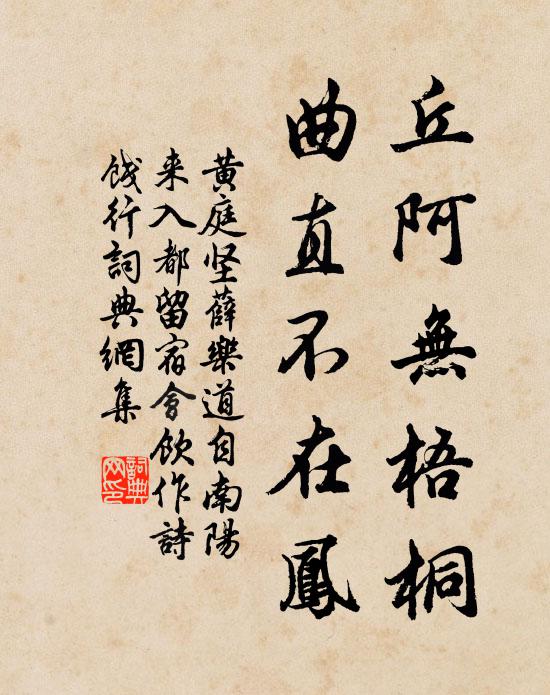 丘阿無梧桐
曲直不在鳳
黃庭堅薛樂道自南陽
来入都留宿會飲作詩
餞行詞典網集
詞典
网印